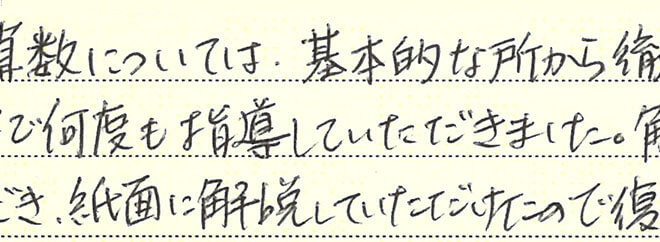 算数については、基本的な所から徹
で何度も指導していただきました。解
だき、紙面に解説していただけたので復